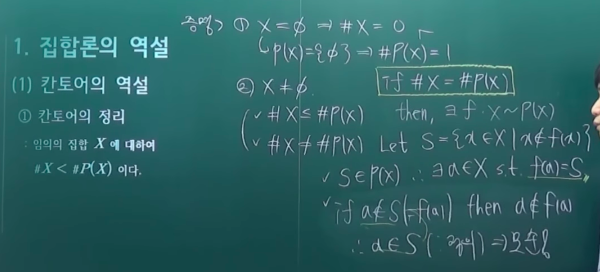 1. 집합론의 역설
(1) 칸토어의 역설
① 칸토어의 정리
: 임의의 집합 X 에 대하여
#X < #P(X) 이다.
증명> ① X = ∅ ⇒ #X = 0
P(X) = {∅} ⇒ #P(X) = 1
② X ≠ ∅.
✓ #X ≤ #P(X)
✓ #X ≠ #P(X)
if #X = #P(X)
then, ∃ f : X ~ P(X)
Let S = {x ∈ X | x ∉ f(x)}
✓ S ∈ P(X) ∴ ∃ a ∈ X s.t. f(a) = S
✓ if a ∉ S (= f(a)) then a ∉ f(a)
∴ a ∈ S (∵ 정의) ⇒ 모순